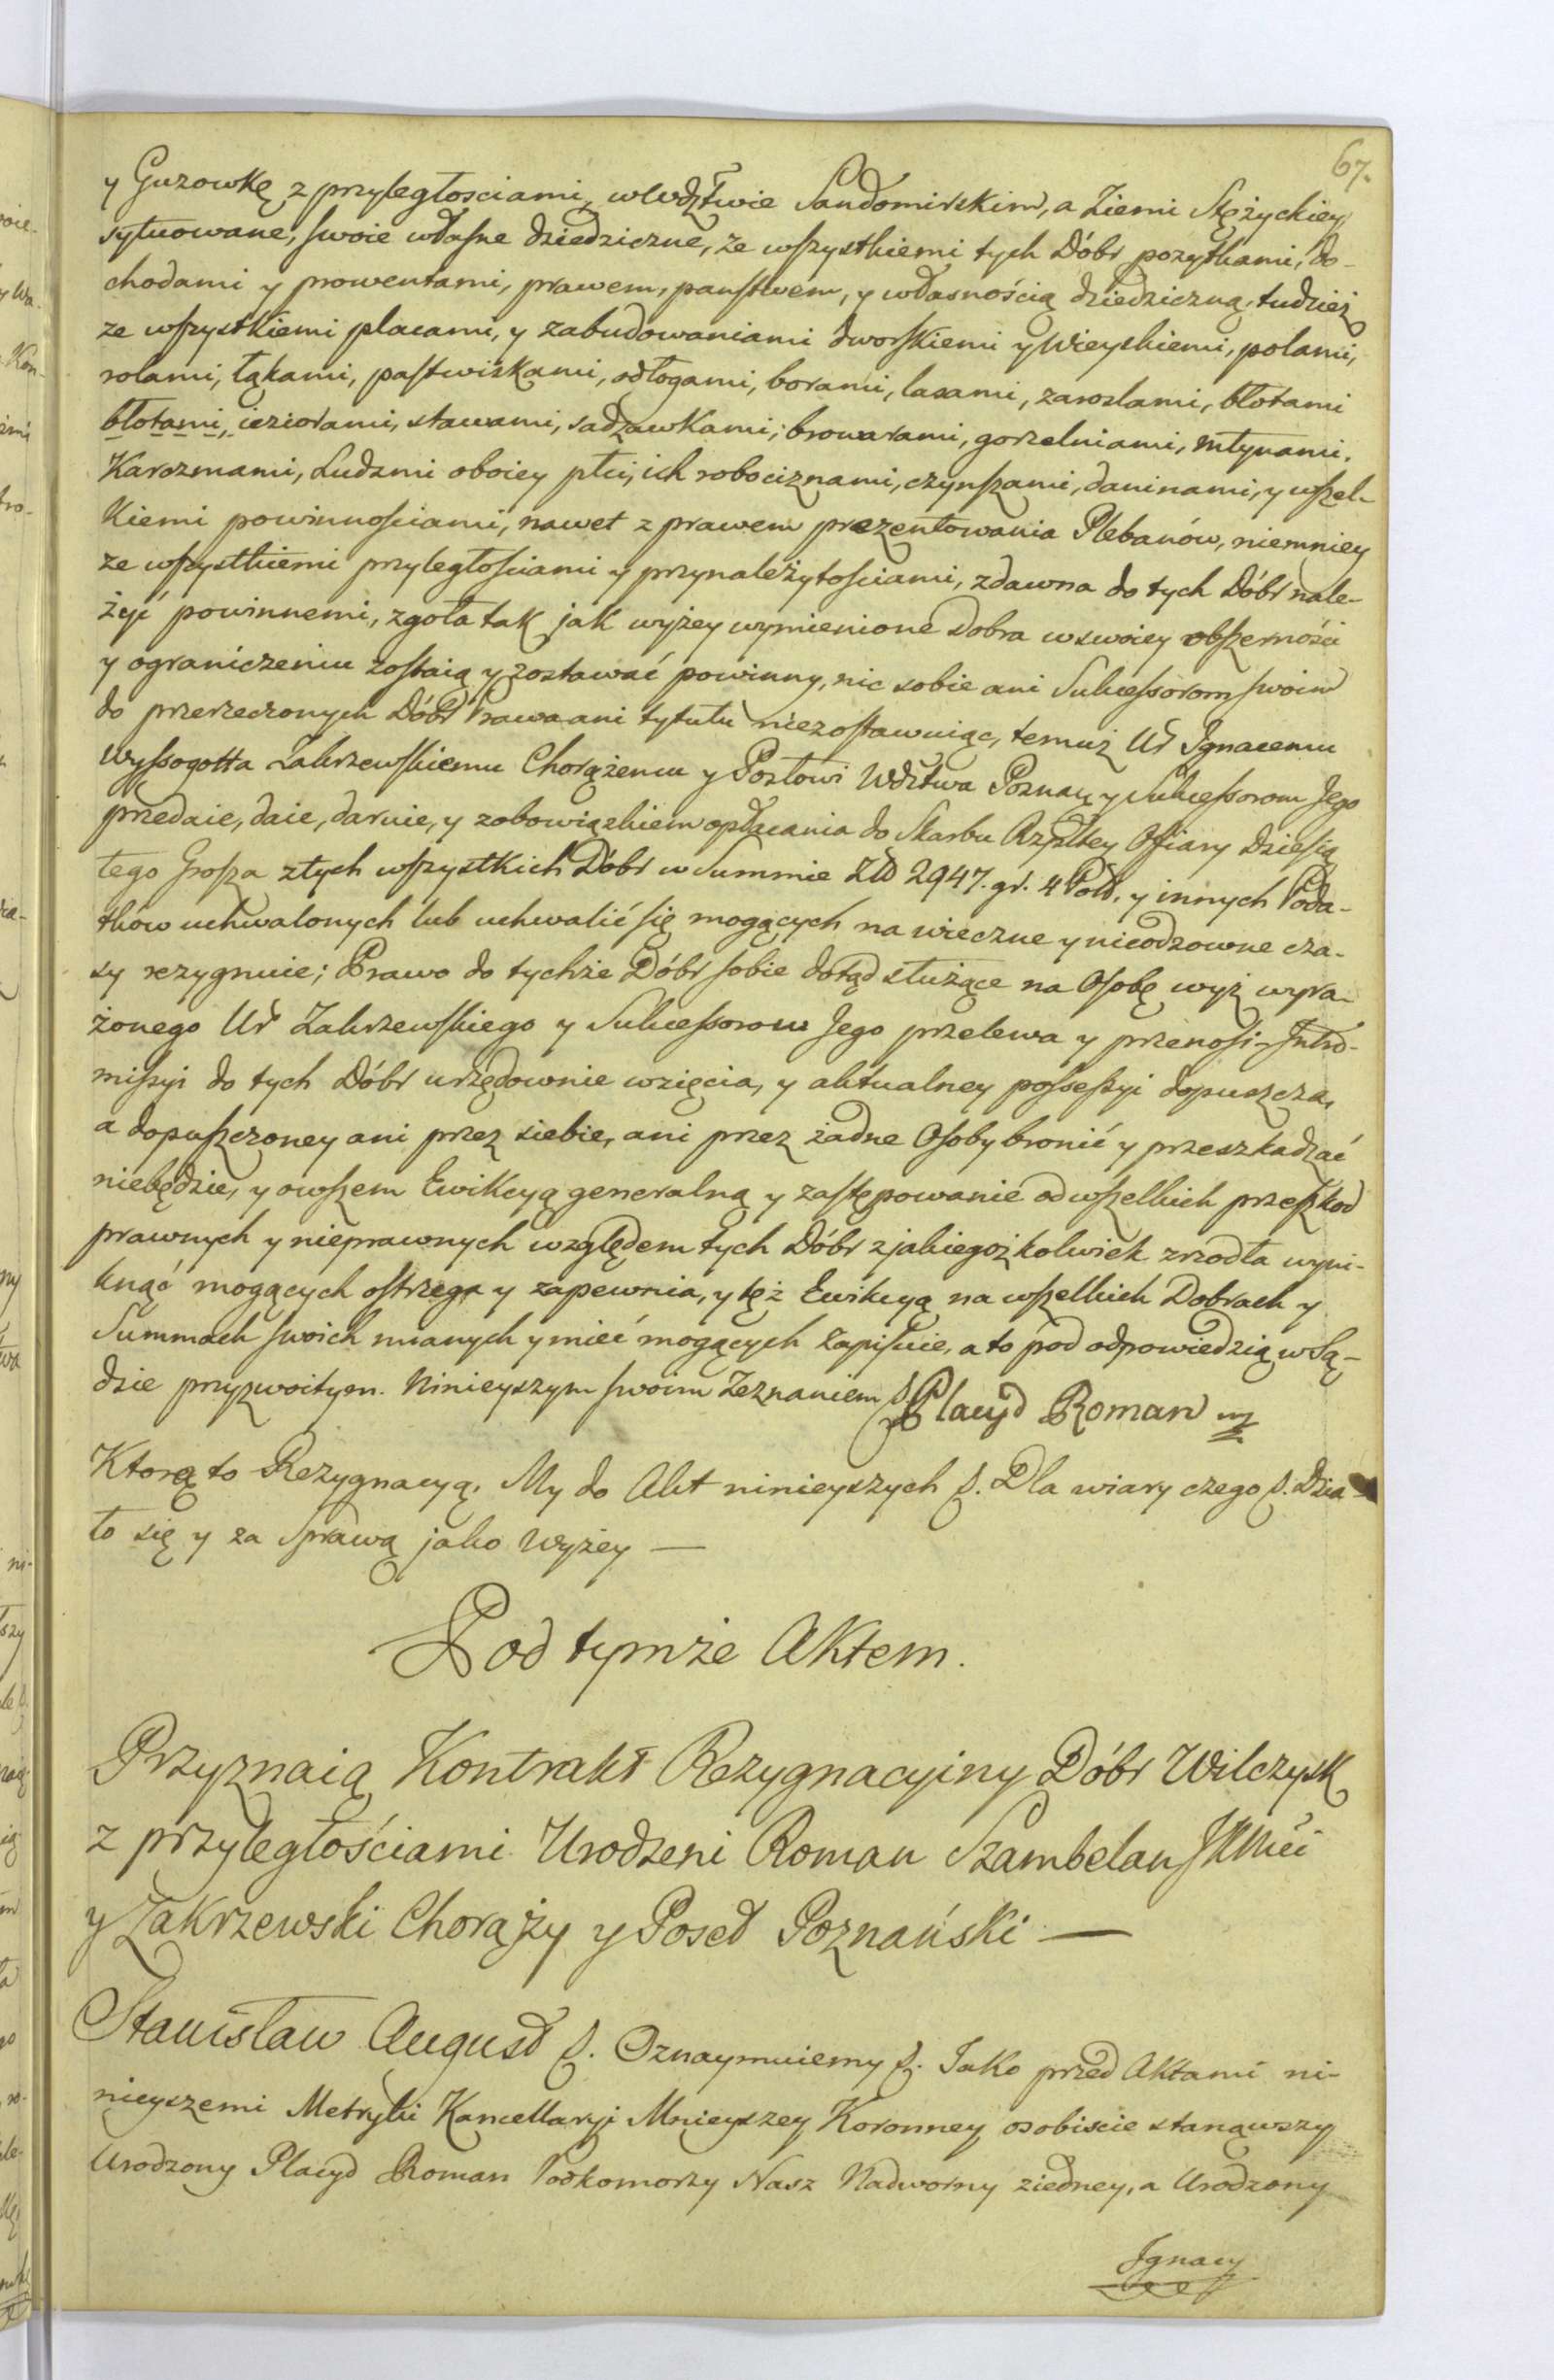 67.
y Guzowkę z przyległosciami, w Wdztwie Sandomirskim, a Ziemi Stężyckiey
sytuowane, swoie własne dziedziczne, ze wszystkiemi tych Dóbr pozytkami, do-
chodami y prowentami, prawem, panstwem, y własnością dziedziczną, tudzież
ze wszystkiemi placami, y zabudowaniami dworskiemi y Wieyskiemi, polami,
rolami, łąkami, pastwiskami, odłogami, borami, lasami, zaroslami, błotami
błotami, ieziorami, stawami, sadzawkami, browarami, gorzelniami, młynami,
Karczmami, Ludzmi oboiey płci, ich robociznami, czynszami, daninami, y wszel-
kiemi powinnościami, nawet z prawem prezentowania Plebanów, niemniey
ze wszystkiemi przyległościami y przynależytościami, zdawna do tych Dóbr nale-
żyć powinnemi, zgoła tak jak wyżey wymienione Dobra w swoiey obszerności
y ograniczeniu zostaią y zostawać powinny, nic sobie ani Sukcessorom swoim
do przerzeczonych Dóbr Prawa ani tytułu niezostawuiąc, temuż Ur Ignacemu
Wyssogotta Zakrzewskiemu Chorążemu y Posłowi Wdztwa Poznań y Sukcessorom Jego
przedaie, daie, daruie, y zobowiązkiem opłacania do Skarbu Rzpltey Ofiary Dziesią
tego Grosza z tych wszystkich Dóbr w Summie Zło 2947. gr. 4 Pols. y innych Poda-
tków uchwalonych lub uchwalić się mogących na wieczne y nieodzowne cza-
sy rezygnuie; Prawo do tychże Dóbr sobie dotąd służące na Osobę wyż wyra-
żonego Ur Zakrzewskiego y Sukcessorow Jego przelewa y przenosi, Intro-
missyi do tych Dóbr urzędownie wzięcia, y aktualney possessyi dopuszcza,
a dopuszczoney ani przez siebie, ani przez żadne Osoby bronić y przeszkadzać
niebędzie, y owszem Ewikcyą generalną y zastępowanie od wszelkich przeszkod
prawnych y nieprawnych względem tych Dóbr z jakiegożkolwiek zrzodła wyni-
knąć mogących ostrzega y zapewnia, y tęż Ewikcyą na wszelkich Dobrach y
Summach swoich mianych y mieć mogących zapisuie, a to pod odpowiedzią w Są-
dzie przyzwoitym. Ninieyszym swoim Zeznaniem Placyd Roman
Ktorą to Rezygnacyą, My do Akt ninieyszych &. Dla wiary czego &. Dzia-
ło się y za Sprawą jako wyżey —
Pod tymże Aktem.
Przyznaią Kontrakt Rezygnacyiny Dóbr Wilczysk
z przyległościami Urodzeni Roman Szambelan JKMci
y Zakrzewski Chorąży y Poseł Poznański —
Stanisław August &. Oznaymuiemy &. Iako przed Aktami ni-
nieyszemi Metryki Kancellaryi Mnieyszey Koronney osobiscie stanąwszy
Urodzony Placyd Roman Podkomorzy Nasz Nadworny ziedney, a Urodzony
Ignacy